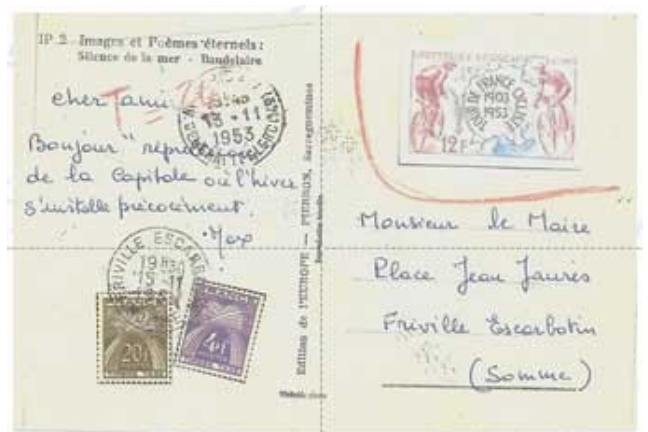 IP 2 - Images et Poèmes éternels :
Silence de la mer - Baudelaire
cher ami
T =
13 -11
1953
Bonjour "
de la Capitale où l'hiver
s'installe précocément.
Max
FRIVILLE ESCARB
19 H30
15-11
20f
4f
Edition de l'EUROPE — PIERRON, Sarreguemines
TOUR DE FRANCE CYCLISTE
1903
1953
12F
Monsieur le Maire
Place Jean Jaurès
Friville Escarbotin
(Somme)